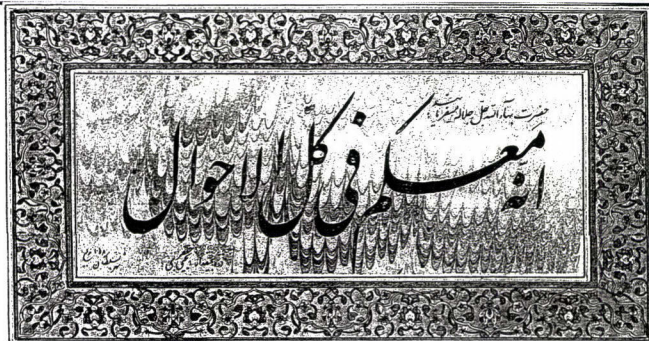 حضرت بهاءالله جل جلاله میفرماید
انه معکم فی کل الاحوال